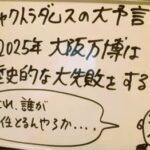 ャクトラダムスの大予言
2025年 大阪万博は
史的な大失敗をする
れ、誰が
任とるんやろか····